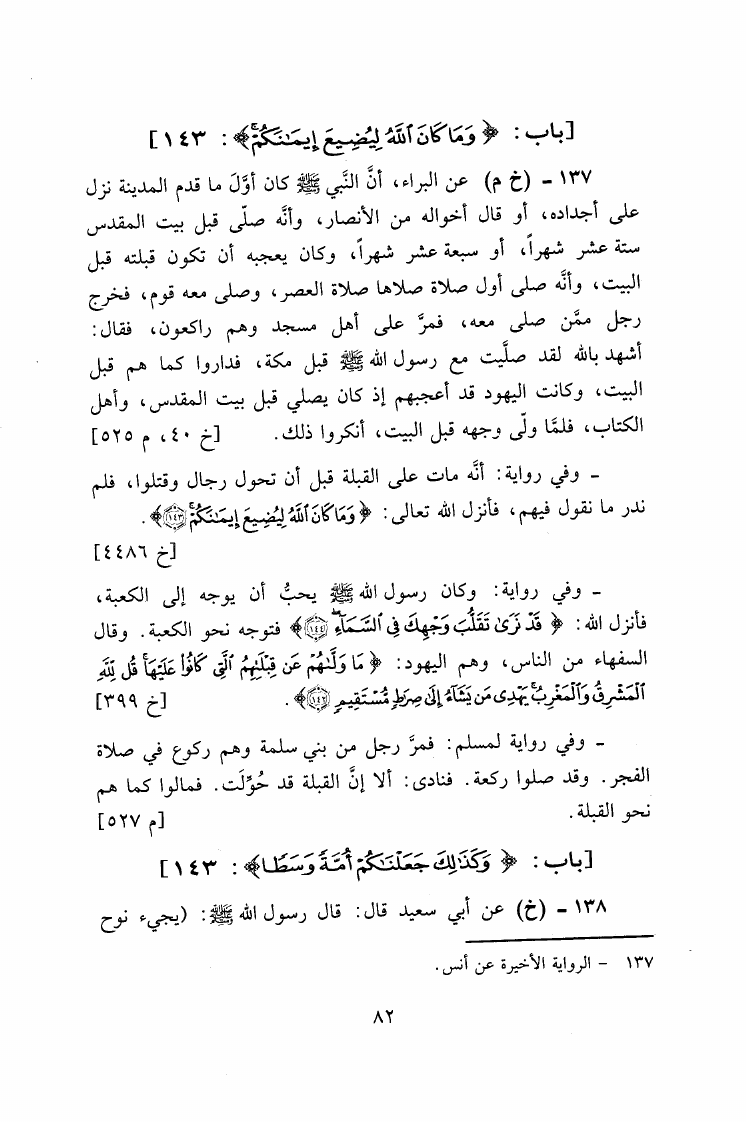 [باب: ﴿ وَمَا كَانَ ٱللَّهُ لِيُضِيعَ إِيمَـٰنَكُمْۚ﴾: ١٤٣]
١٣٧ ـ (خ م) عن البراء، أنَّ النَّبي ﷺ كان أوَّلَ ما قدم المدينة نزل
على أجداده، أو قال أخواله من الأنصار، وأنَّه صلّى قبل بيت المقدس
ستة عشر شهراً، أو سبعة عشر شهراً، وكان يعجبه أن تكون قبلته قبل
البيت، وأنَّه صلى أول صلاة صلاها صلاة العصر، وصلى معه قوم، فخرج
رجل ممَّن صلى معه، فمرَّ على أهل مسجد وهم راكعون، فقال:
أشهد بالله لقد صلَّيت مع رسول الله ﷺ قبل مكة، فداروا كما هم قبل
البيت، وكانت اليهود قد أعجبهم إذ كان يصلي قبل بيت المقدس، وأهل
الكتاب، فلمَّا ولّى وجهه قبل البيت، أنكروا ذلك. [خ ٤٠، م ٥٢٥]
ـ وفي رواية: أنَّه مات على القبلة قبل أن تحول رجال وقتلوا، فلم
ندر ما نقول فيهم، فأنزل الله تعالى: ﴿ وَمَا كَانَ ٱللَّهُ لِيُضِيعَ إِيمَـٰنَكُمْۚ ١٤٣﴾.
[خ ٤٤٨٦]
ـ وفي رواية: وكان رسول الله ﷺ يحبُّ أن يوجه إلى الكعبة،
فأنزل الله: ﴿ قَدْ نَرَىٰ تَقَلُّبَ وَجْهِكَ فِى ٱلسَّمَآءِۖ ١٤٤﴾ فتوجه نحو الكعبة. وقال
السفهاء من الناس، وهم اليهود: ﴿ مَا وَلَّىٰهُمْ عَن قِبْلَتِهِمُ ٱلَّتِى كَانُوا۟ عَلَيْهَاۚ قُل لِّلَّهِ
ٱلْمَشْرِقُ وَٱلْمَغْرِبُۚ يَهْدِى مَن يَشَآءُ إِلَىٰ صِرَٰطٍ مُّسْتَقِيمٍ ١٤٢﴾. [خ ٣٩٩]
ـ وفي رواية لمسلم: فمرَّ رجل من بني سلمة وهم ركوع في صلاة
الفجر. وقد صلوا ركعة. فنادى: ألا إنَّ القبلة قد حُوِّلَت. فمالوا كما هم
نحو القبلة. [م ٥٢٧]
[باب: ﴿ وَكَذَٰلِكَ جَعَلْنَـٰكُمْ أُمَّةً وَسَطًا﴾: ١٤٣]
١٣٨ ـ (خ) عن أبي سعيد قال: قال رسول الله ﷺ: (يجيء نوح
١٣٧ ـ الرواية الأخيرة عن أنس.
٨٢